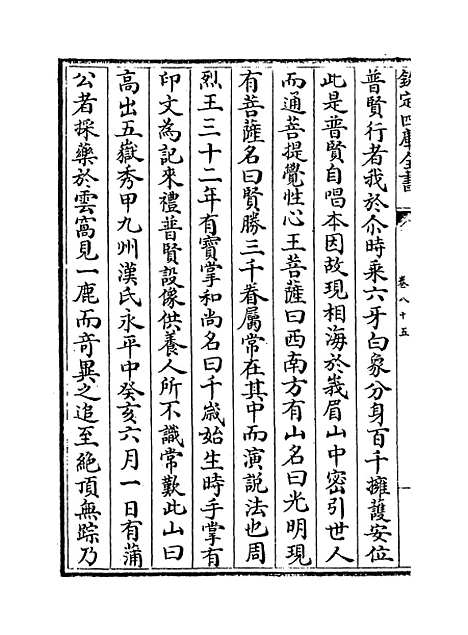 欽定四庫全書
卷八十五
普賢行者我於尒時乘六牙白象分身百千擁䕶安位
此是普賢自唱本因故現相海於峩眉山中密引世人
而通菩提覺性心王菩薩曰西南方有山名曰光明現
有菩薩名曰賢勝三千眷屬常在其中而演説法也周
烈王三十二年有寶掌和尚名曰千嵗始生時手掌有
印文為記來禮普賢設像供養人所不識常歎此山曰
高出五嶽秀甲九州漢氏永平中癸亥六月一日有蒲
公者採藥於雲窩見一鹿而竒異之追至絶頂無踪乃